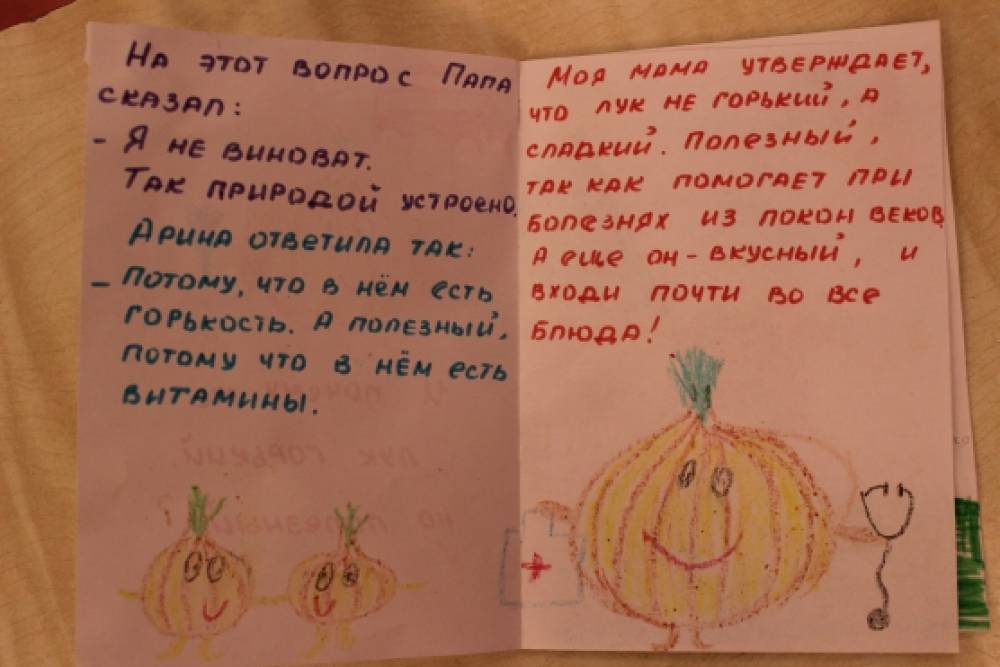 На этот вопрос Папа
сказал:
- Я не виноват.
Так природой устроено.
Арина ответила так:
- Потому, что в нём есть
горькость. А полезный,
потому что в нём есть
витамины.
Моя мама утверждает,
что лук не горький, а
сладкий. Полезный,
так как помогает при
болезнях из покон веков
А еще он - вкусный, и
входи почти во все
блюда!
почему
лук горький,
но полезный?